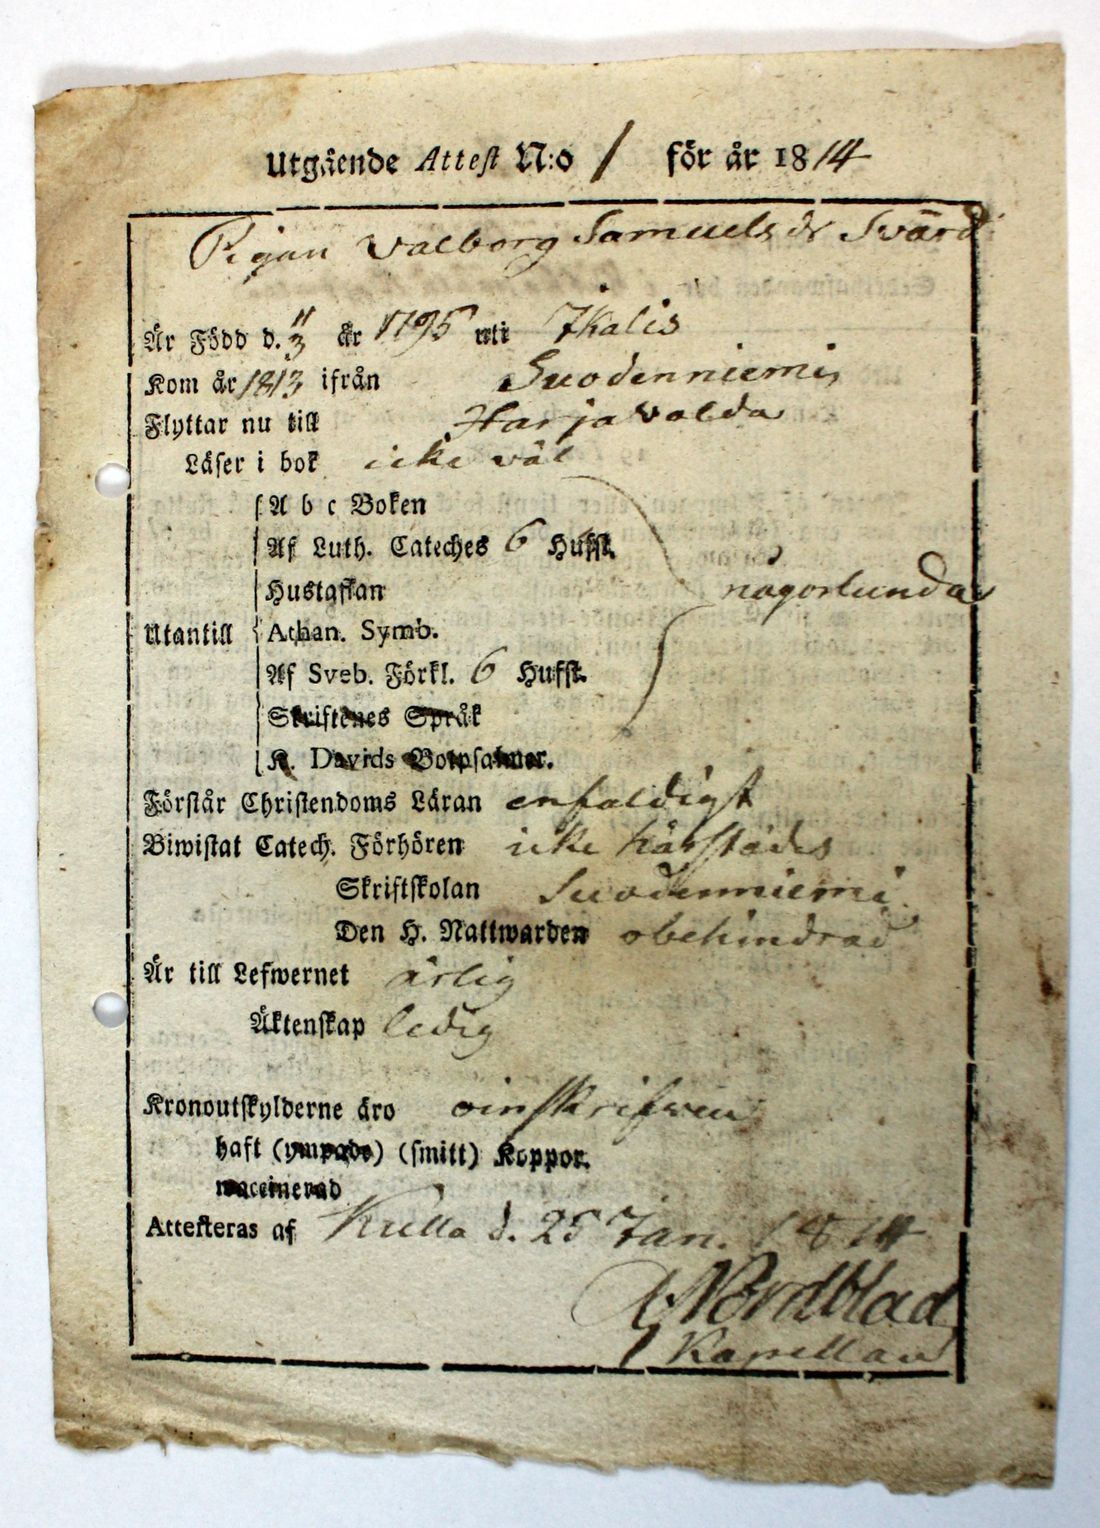 Utgående Attest N:o 1 för år 1814
Pigan Valborg Samuels dr Svärd
Är Född d. 11/3 år 1795 uti Ikalis
Kom år 1813 ifrån Suodenniemi,
Flyttar nu till Harjavalda
Läser i bok icke väl
A b c Boken
Af Luth. Cateches 6 Hufst.
Hustaflan någorlunda
Utantill Athan. Symb.
Af Sveb. Förkl. 6 Hufst.
Skriftenes Språk
K. Davids Botpsalmer.
Förstår Christendoms Läran enfaldigt
Biwistat Catech. Förhören icke härstädes
Skriftskolan Suodenniemi
Den H. Nattwarden obehindrad
Är till Lefwernet ärlig
Äktenskap ledig
Kronoutskylderne äro oinskrifven
haft (ympade) (smitt) Koppor.
waccinerad
Attesteras af Kulla d. 25 Jan. 1814
Nordblad
Kapellan